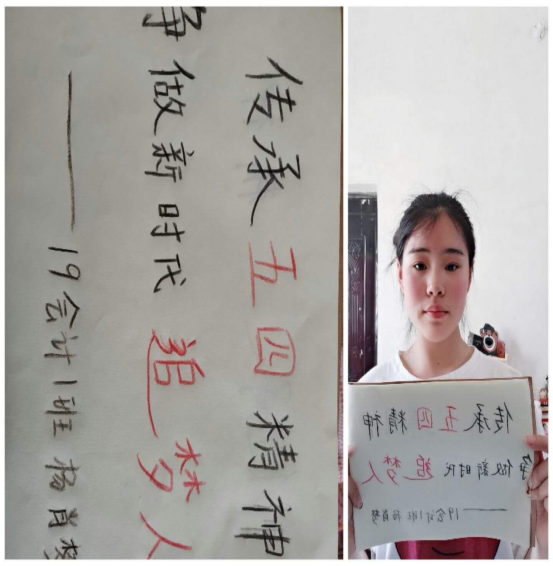 传承五四精神
争做新时代追梦人
——19会计1班 杨肖梦
传承五四精神
争做新时代追梦人
——19会计1班 杨肖梦